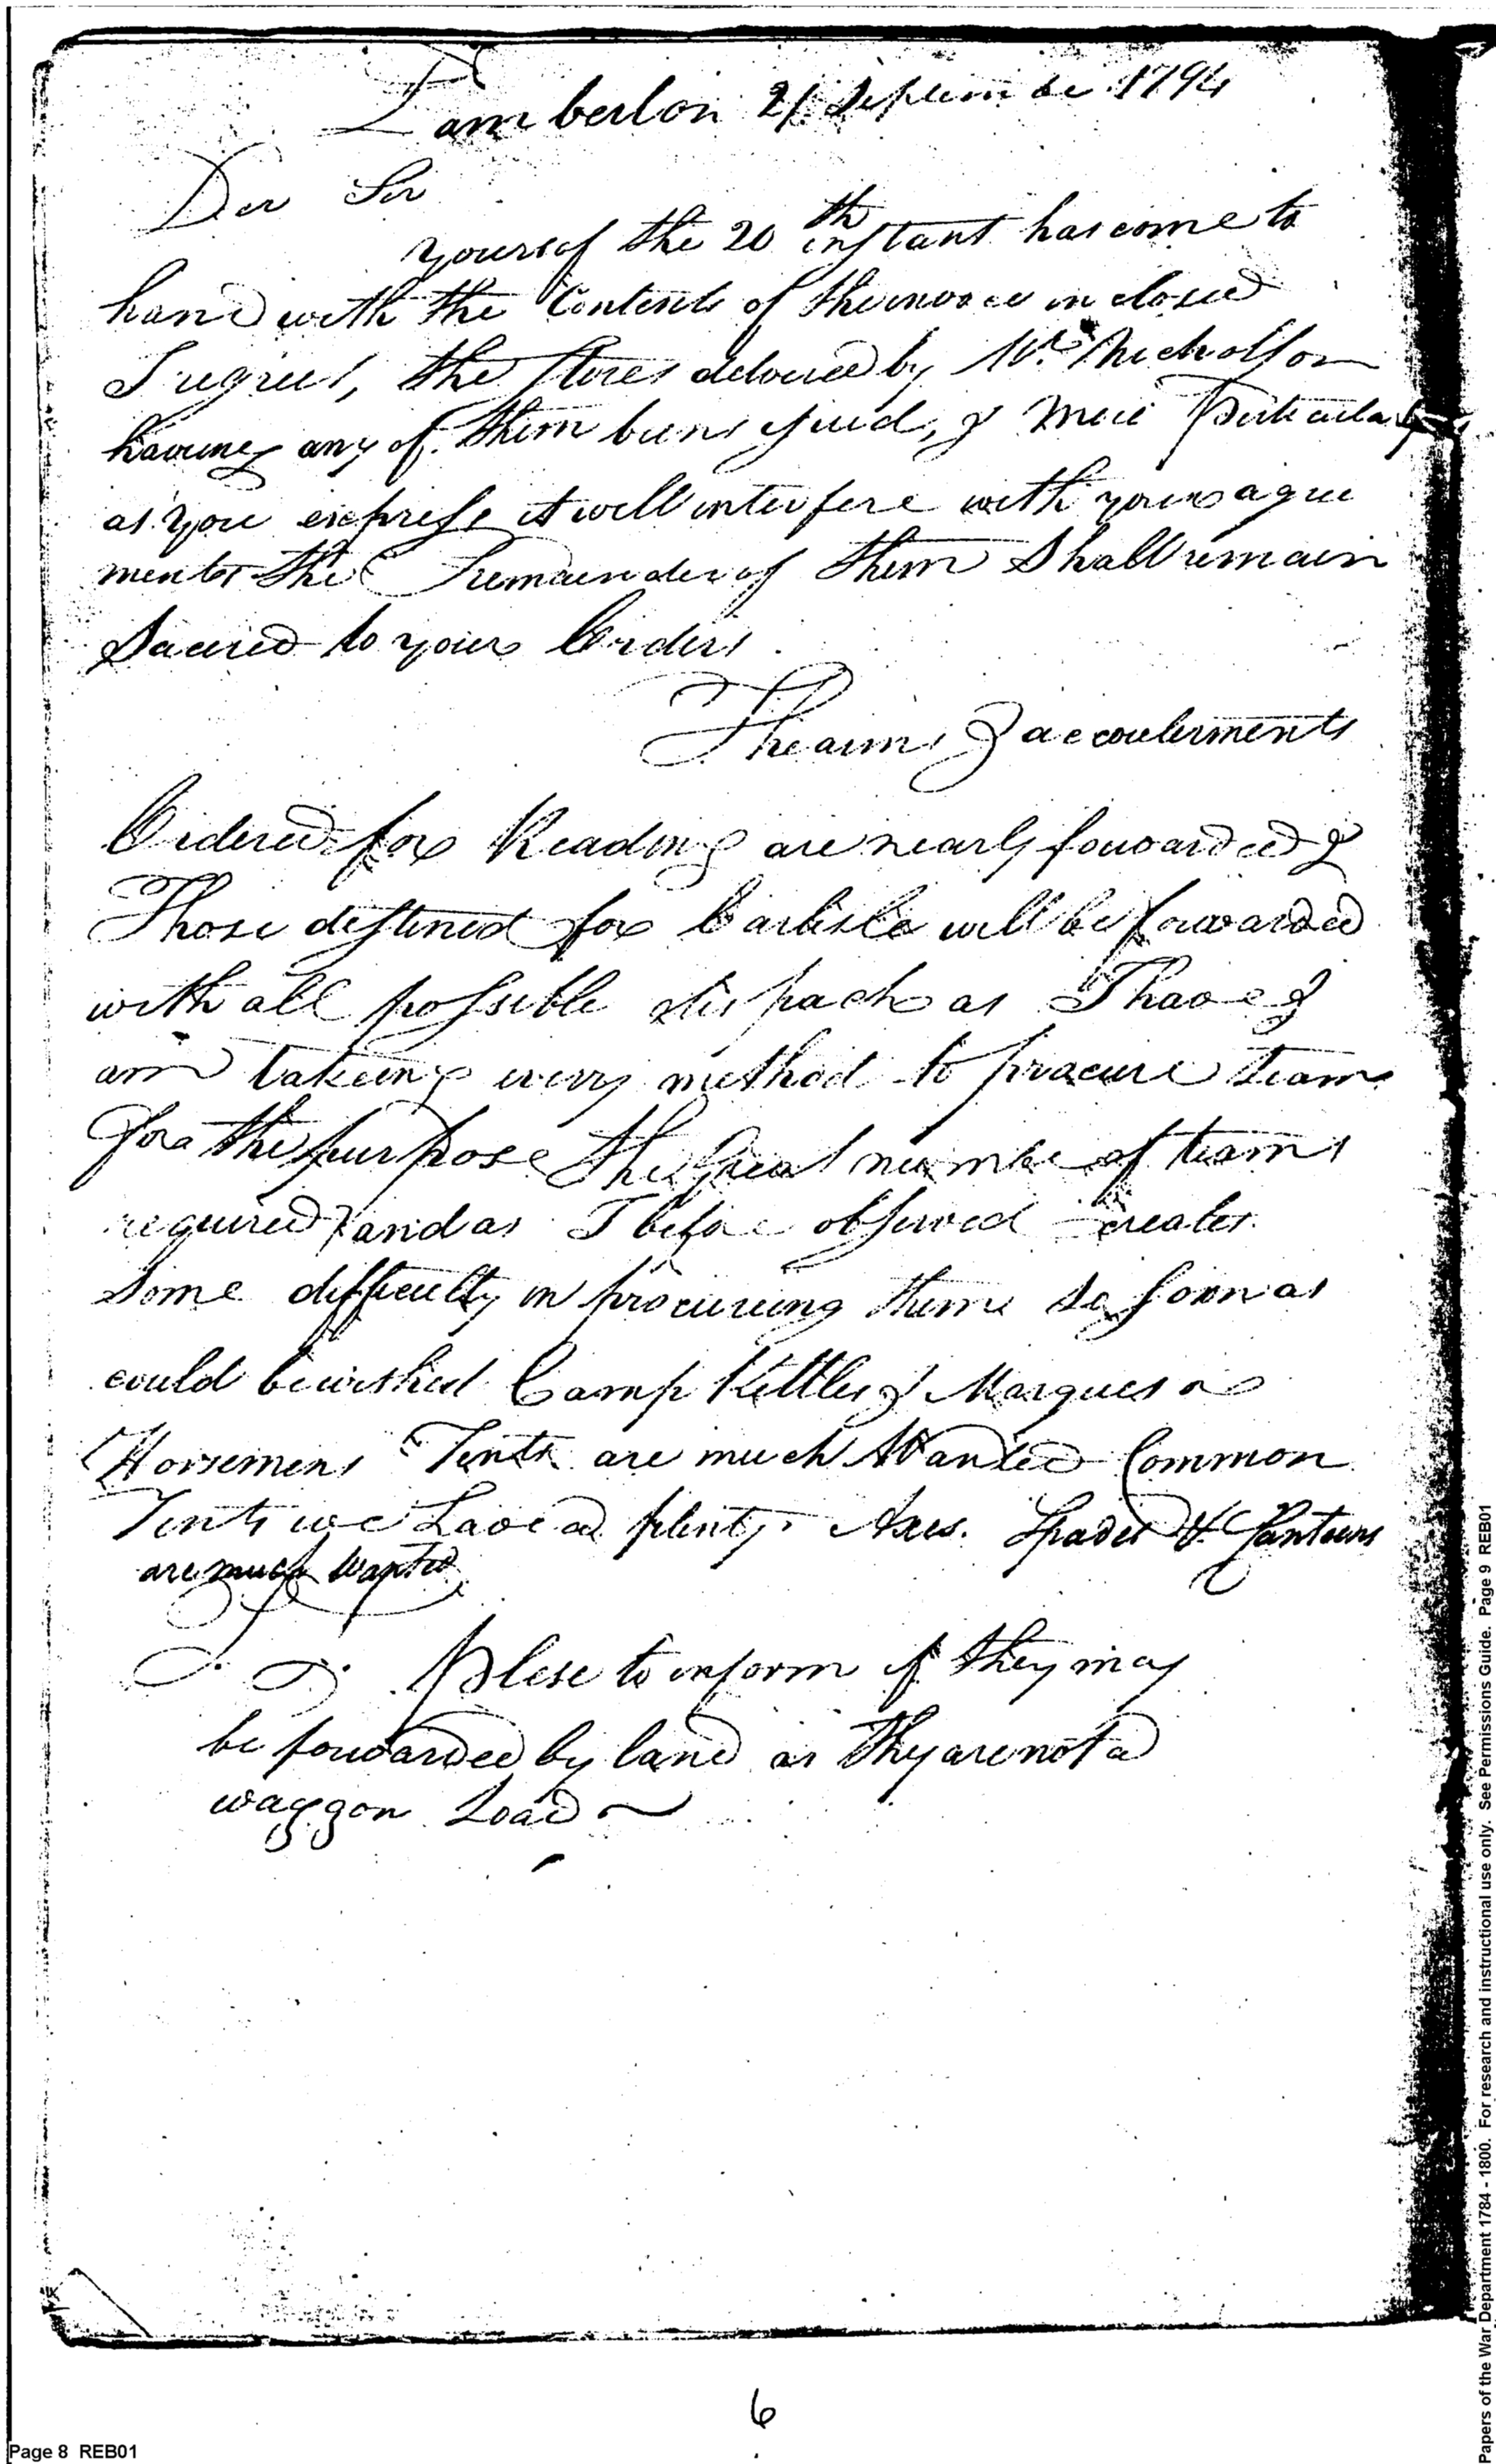 Lamberton 21 Septembe 1794
Der Sir
yours of the 20th instant has come to
hand with the Contents of the invoce inclosed
I regret, the stores delivered by Mr. Nicholson
having any of them been isued, & more Particularly
as you express it will interfere with your agree
ments the Remainder of them Shall remain
Sacred to your Orders.
The arms & accouterments
Ordered for Reading are nearly forwarded &
Those destined for Carlisle will be forwarded
with all possible dispach as I have &
am takeing every method to procure teams
for the purpose the Great numbe of teams
required and as I before observed creates
Some difficulty in procureing them so soon as
could be wished Camp Kettles & Marques or
Horsemens Tents are much Wanted Common
Tents we have a plenty. Axes. Spades &
are much Wanted
Plese to inform if they may
be forwarded by land as they are not a
waggon Load
6
Page 8 REB01
Papers of the War Department 1784 - 1800. For research and instructional use only. See Permissions Guide. Page 9 REB01